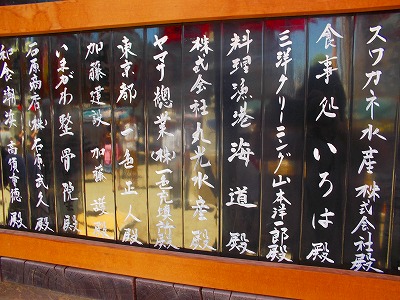 スワカネ水産株式会社殿
食事処いろは殿
三洋クリーニング山本洋一郎殿
料理漁港海道殿
株式会社丸光水産殿
ヤマサ總業(株)一色充填所殿
東京都一色正人殿
加藤建設加藤護殿
いまがわ整骨院殿
石原病石(株)石原武久殿
高須常徳殿